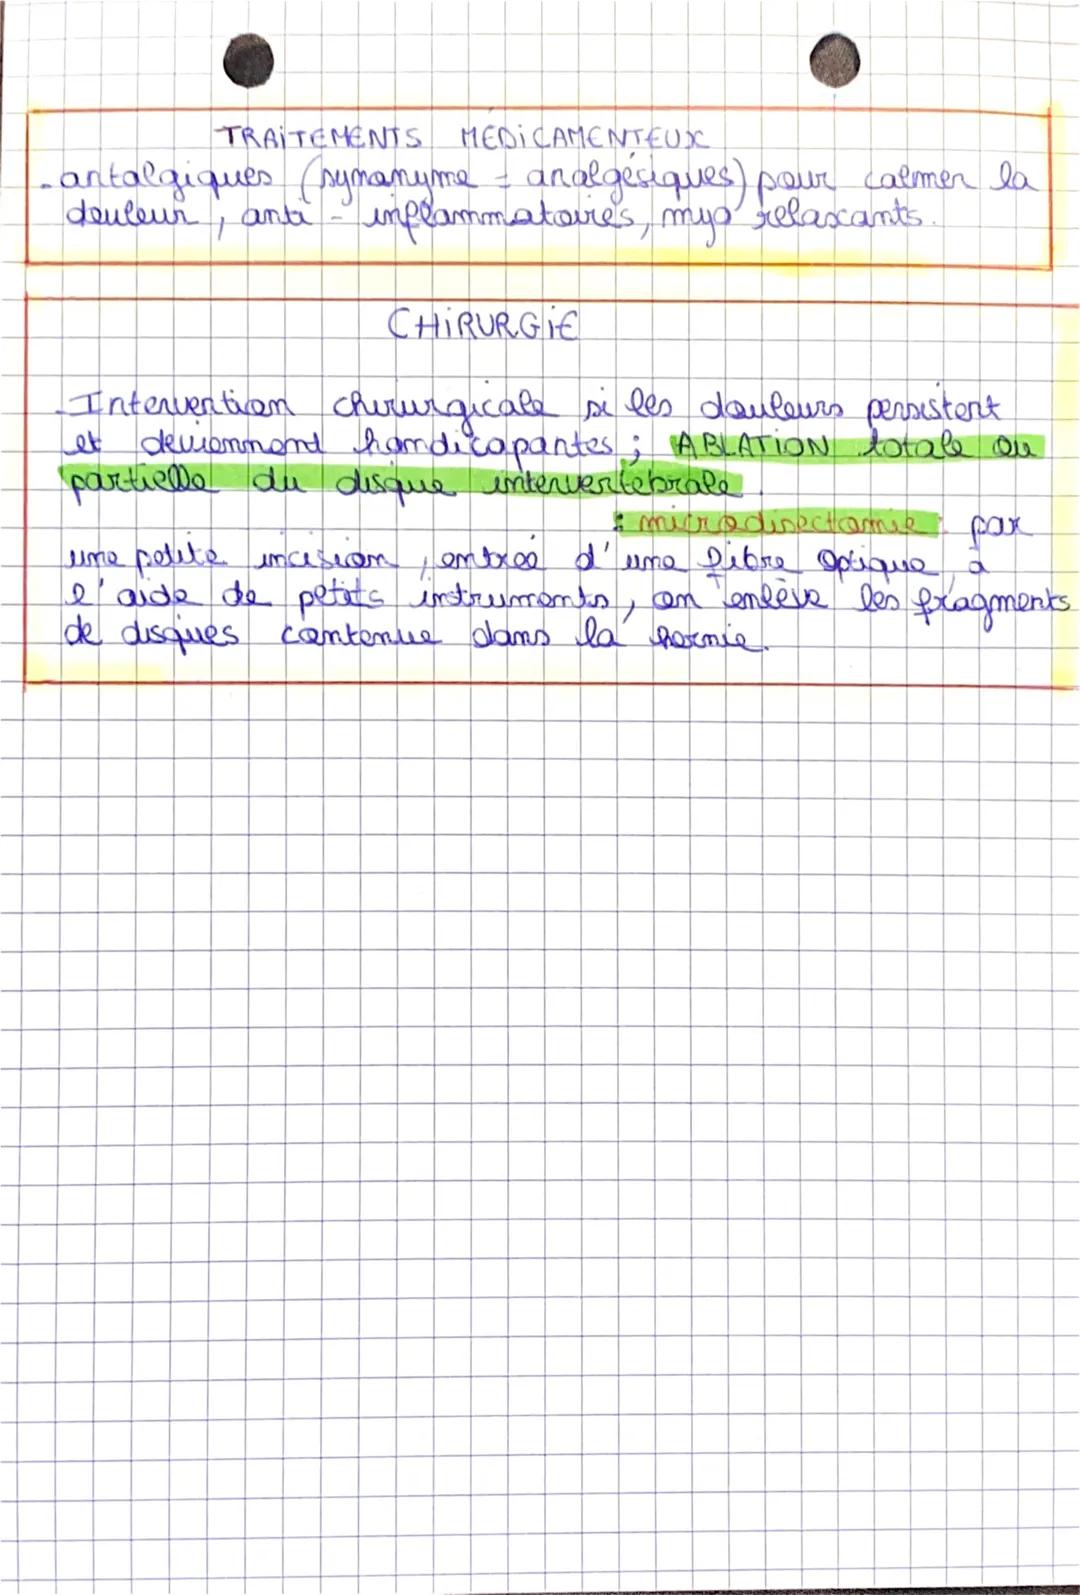 TRAITEMENTS MÉDICAMENTEUX
- antalgiques (synonyme = analgésiques) pour calmer la
douleur, anti-inflammatoires, myo relaxants.
CHIRURGIE
- Intervention chirurgicale si les douleurs persistent
et deviennent handicapantes ; ABLATION totale ou
partielle du disque intervertébrale.
: microdisectomie : par
une petite incision, entrée d'une fibre optique, à
l'aide de petits instruments, on enlève les fragments
de disques contenue dans la hernie.